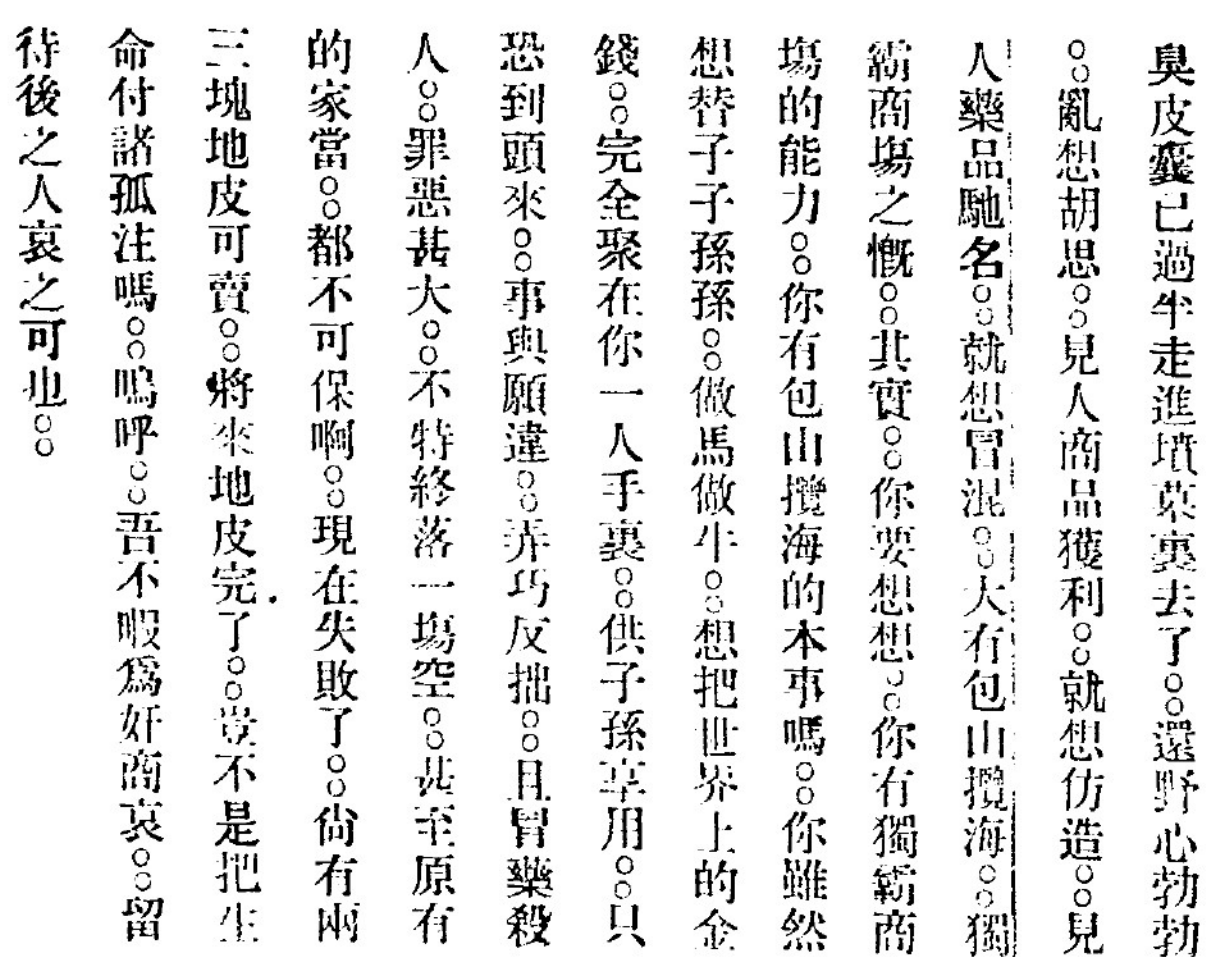 臭皮囊已過半走進墳墓裏去了。。還野心勃勃
。。亂想胡思。。見人商品獲利。。就想仿造。。見
人藥品馳名。。就想冒混。。大有包山攬海。。獨
霸商塲之慨。。其實。。你要想想。。你有獨霸商
塲的能力。。你有包山攬海的本事嗎。。你雖然
想替子子孫孫。。做馬做牛。。想把世界上的金
錢。。完全聚在你一人手裏。。供子孫享用。。只
恐到頭來。。事與願違。。弄巧反拙。。且冒藥殺
人。。罪惡甚大。。不特終落一塲空。。甚至原有
的家當。。都不可保啊。。現在失敗了。。尙有兩
三塊地皮可賣。。將來地皮完了。。豈不是把生
命付諸孤注嗎。。嗚呼。。吾不暇爲奸商哀。。留
待後之人哀之可也。。